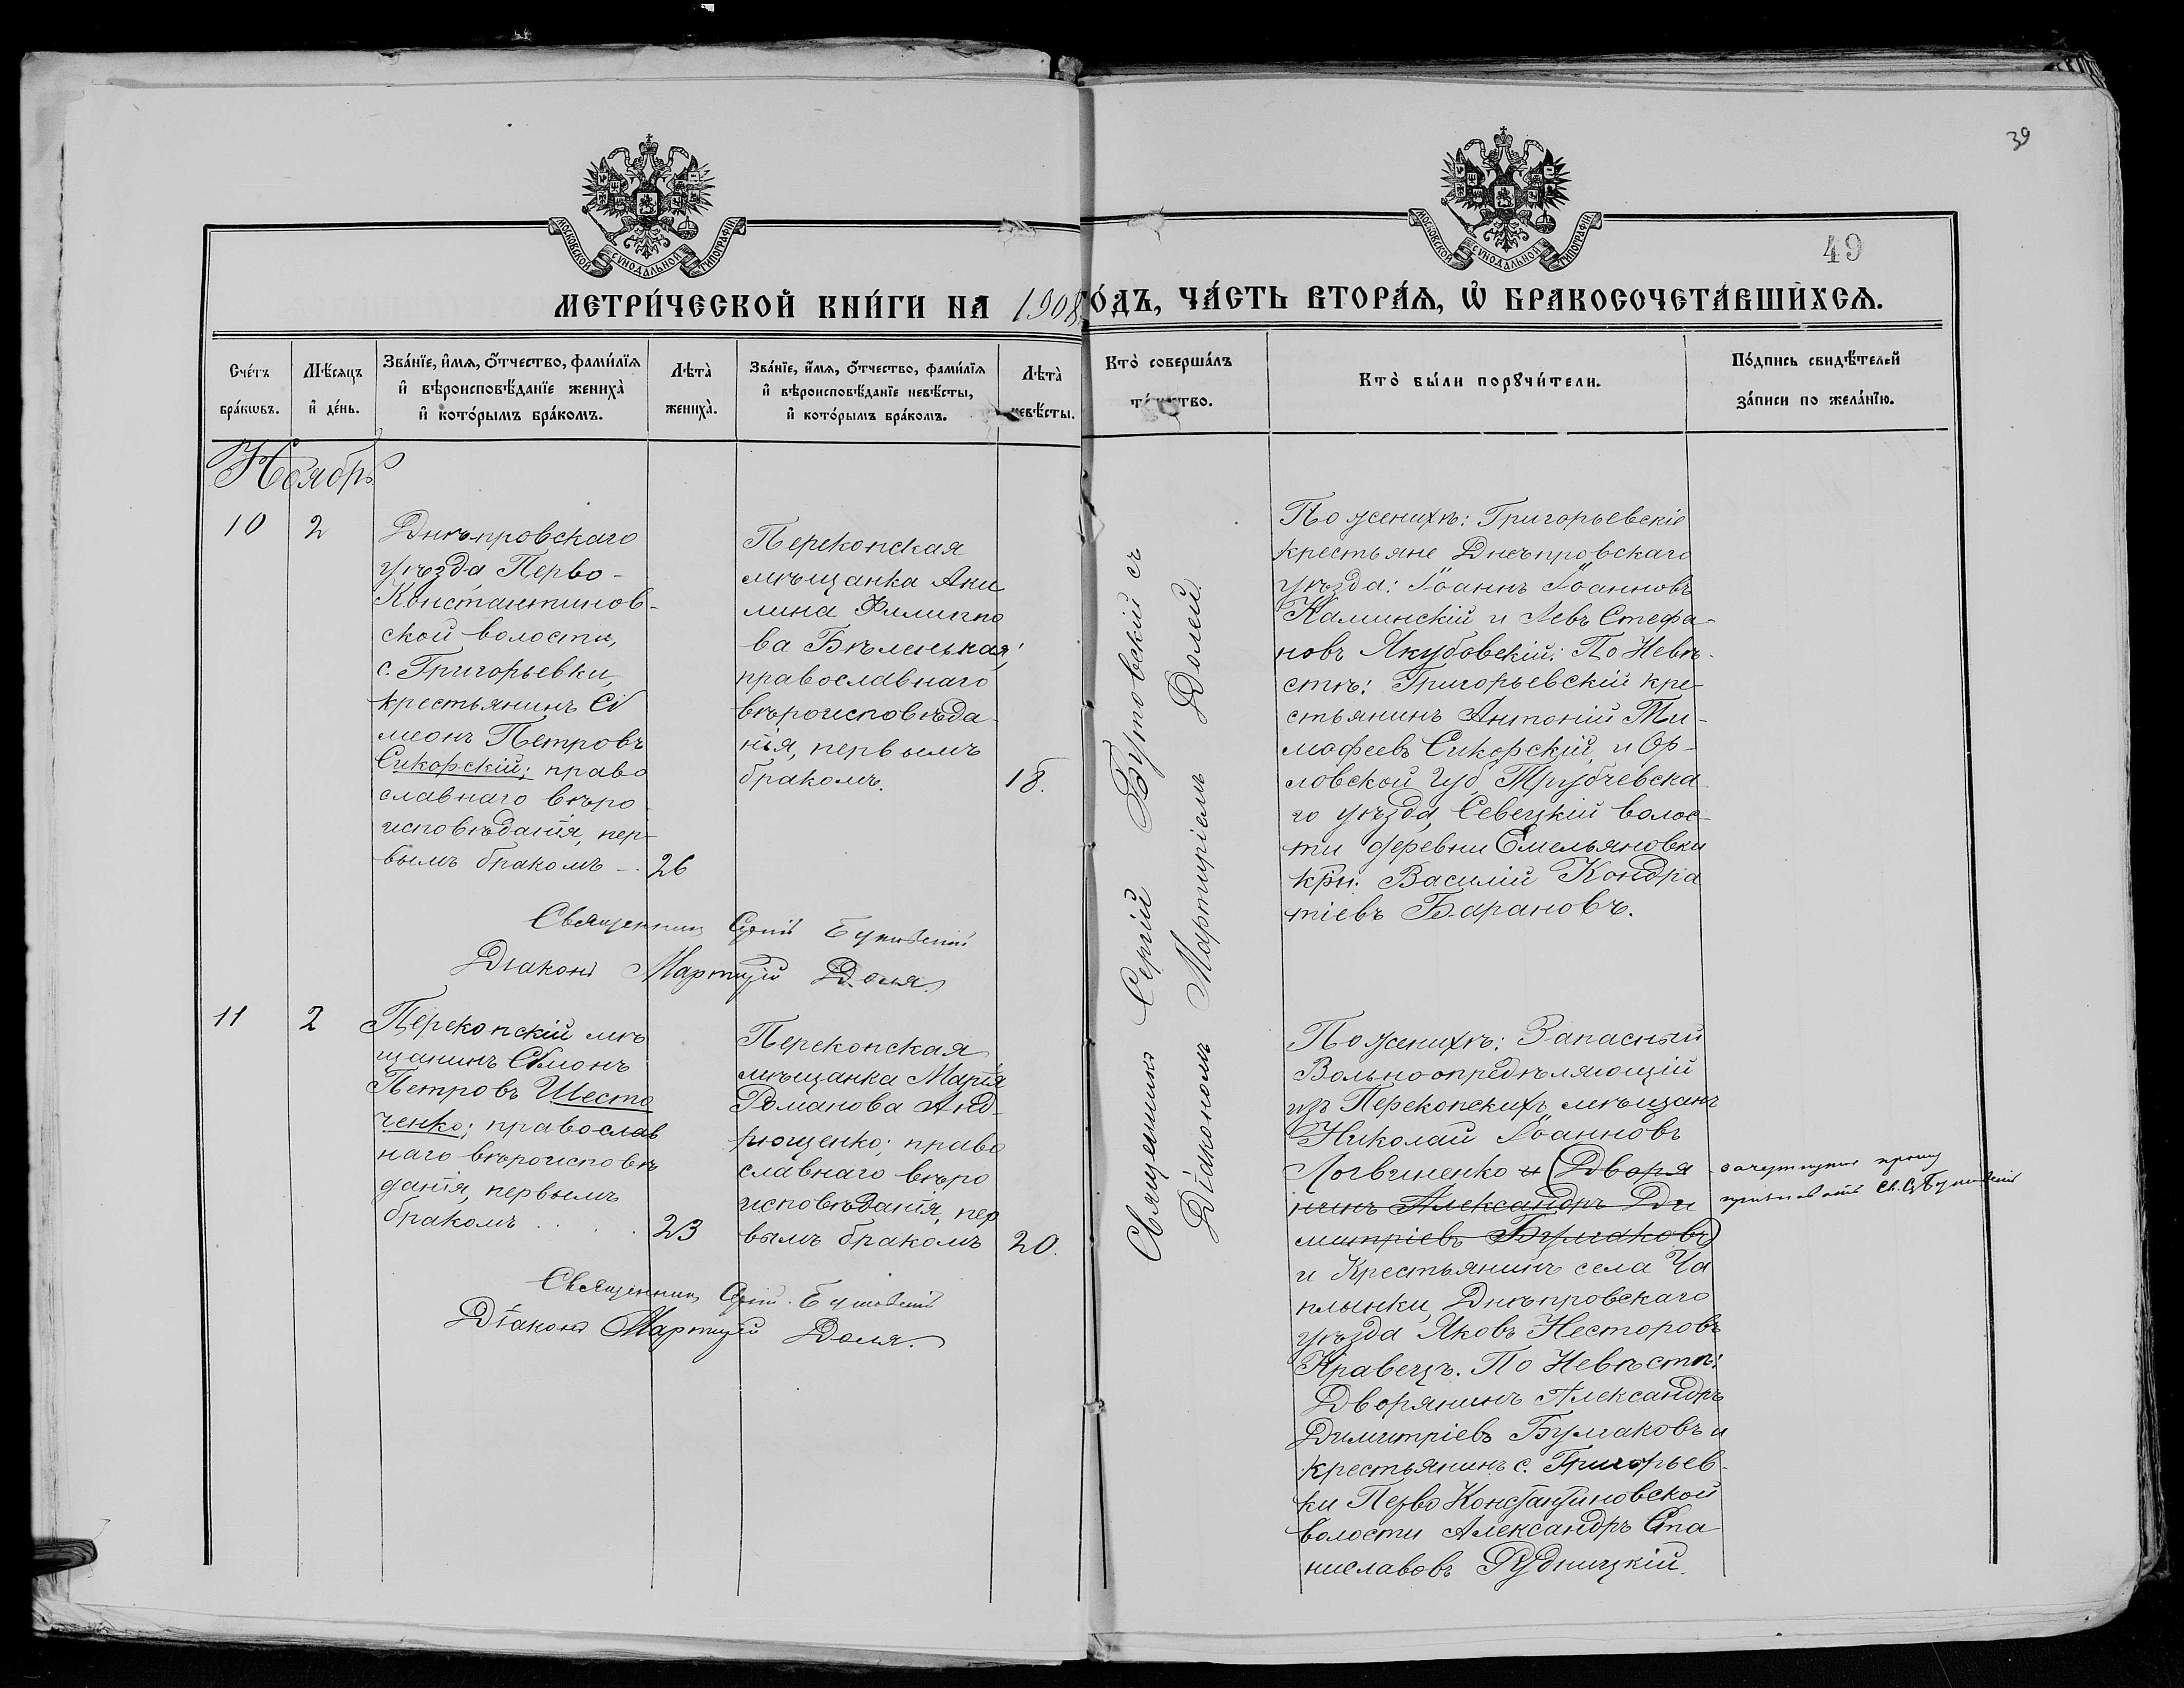 39
МОСКОВСКОЙ СѴНОДАЛЬНОЙ ТИПОГРАФІИ
МОСКОВСКОЙ СѴНОДАЛЬНОЙ ТИПОГРАФІИ
49
МЕТРИ́ЧЕСКОЙ КНИ́ГИ НА 1908 ГО́ДЪ, ЧА́СТЬ ВТОРА́Ѧ, Ѡ҆ БРАКОСОЧЕТА́ВШИ́ХСѦ.
Сче́тъ бра́кѡвъ.
Мѣ́сяцъ и҆ де́нь.
Зва́нїе, и҆́мѧ, ѻ҆́тчество, фами́лїѧ
и҆ вѣроисповѣ́данїе жениха̀
и҆ кото́рымъ бра́комъ.
Лѣта̀ жениха̀.
Зва́нїе, и҆́мѧ, ѻ҆́тчество, фами́лїѧ
и҆ вѣроисповѣ́данїе невѣ́сты,
и҆ кото́рымъ бра́комъ.
Лѣта̀ невѣ́сты.
Кто̀ соверша́лъ
та́инство.
Кто̀ бы́ли порꙋчи́тели.
По́дпись свидѣ́телей
за́писи по жела́нїю.
Ноябрь
10
2
Днѣпровскаго
уѣзда Перво-
Константинов-
ской волости,
с. Григорьевки,
крестьянинъ Сѵ
меонъ Петровъ
Сикорскій; право
славнаго вѣро
исповѣданія, пер-
вымъ бракомъ –.
26
Перекопская
мѣщанка Аки
лина Филиппо
ва Бѣленькая;
православнаго
вѣроисповѣда-
нія, первымъ
бракомъ.
18.
Священникъ Сергій Бутовскій съ
Діакономъ Мартиріемъ Долей.
По женихѣ: Григорьевскіе
крестьяне Днѣпровскаго
уѣзда: Іоаннъ Іоанновъ
Каминскій и Левъ Стефа-
новъ Якубовскій; По Невѣ-
стѣ: Григорьевскій кре-
стьянинъ Антоній Ти-
мофеевъ Сикорскій, и Ор-
ловской губ, Трубчевска
го уѣзда, Севецкій волос-
ти деревни Емельяновки
крн. Василій Кондра
тіевъ Барановъ.
Священникъ Сергій Бутовскій
Діаконъ Мартирій Доля.
11
2
Перекопскій мѣ
щанинъ Сѵмонъ
Петровъ Шесто
ченко; православ
наго вѣроисповѣ
данія, первымъ
бракомъ . . . .
23
Перекопская
мѣщанка Марія
Романова Анд-
рющенко; право
славнаго вѣро
исповѣданія, пер
вымъ бракомъ
20.
По женихѣ: Запасный
Вольноопредѣляющій
изъ Перекопскихъ мѣщанъ
Николай Іоанновъ
Логвиненко и (Дворя
нинъ Александръ Ди
митріевъ Булгаковъ)
и Крестьянинъ села Ча
плынки, Днѣпровскаго
уѣзда Яковъ Несторовъ
Кравецъ. По Невѣстѣ:
Дворянинъ Александръ
Димитріевъ Булгаковъ и
крестьянинъ с. Григорьев-
ки Перво Константиновской
волости Александръ Ста
ниславовъ Рудницкій.
зачеркнутое прошу
Св. С. Бутовскій
Священникъ Сергій Бутовскій
Діаконъ Мартирій Доля.